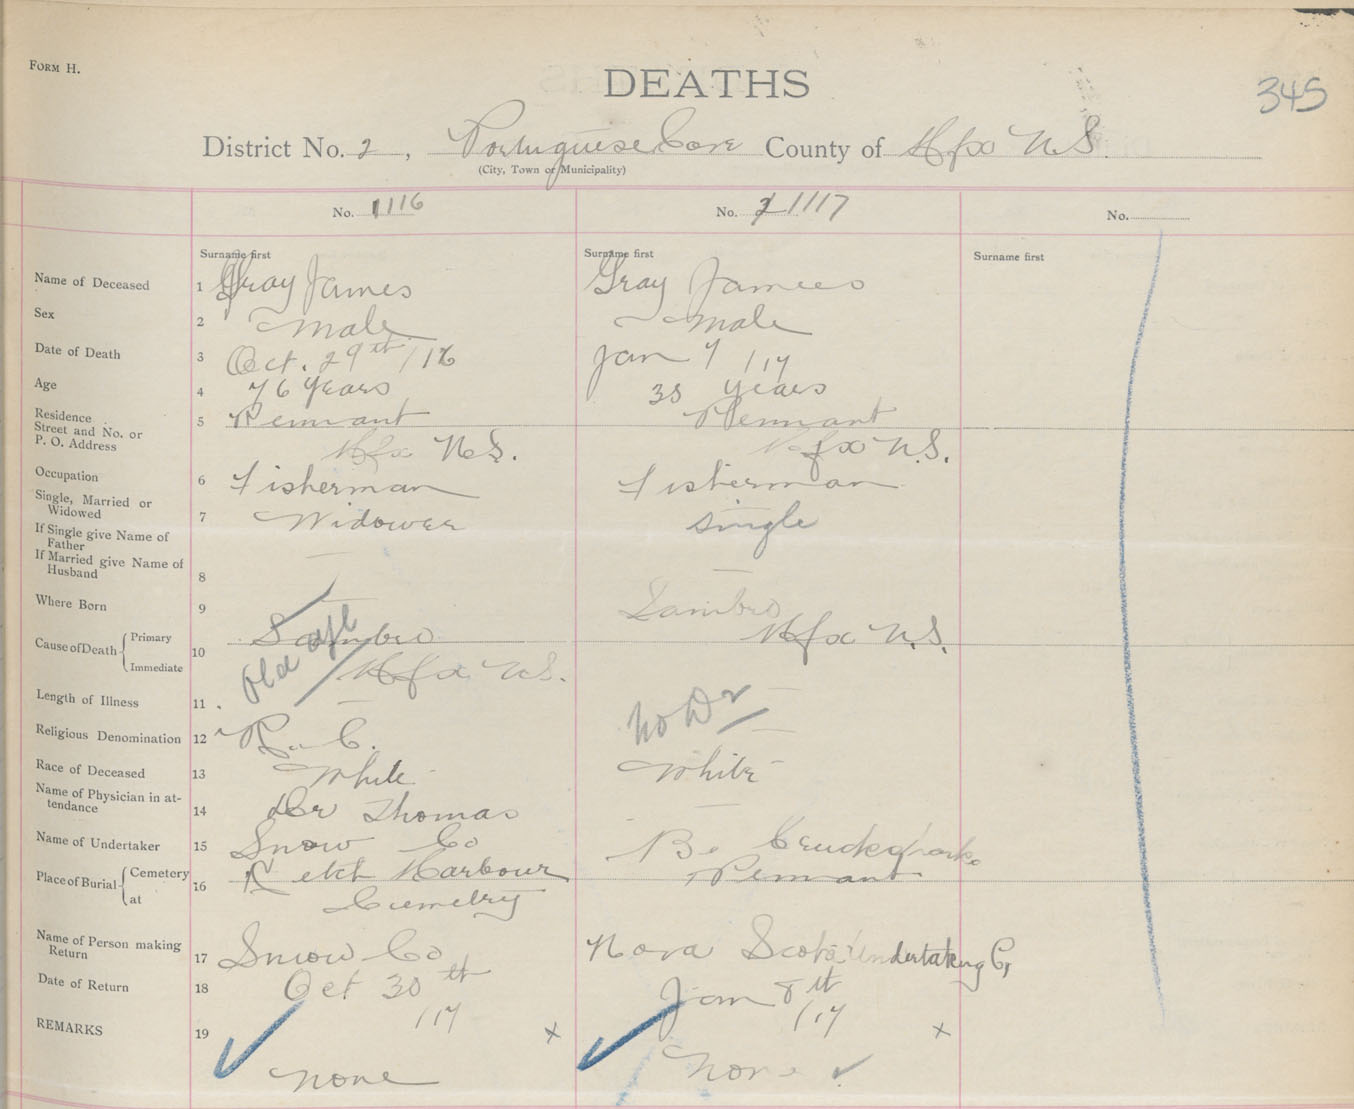 FORM H.
DEATHS
345
District No. 2, Portuguese Cove County of Hfx N.S.
(City, Town or Municipality)
No. 1116 No. 2 1117 No.
Surname first Surname first Surname first
Name of Deceased 1 Gray James Gray James
Sex 2 male male
Date of Death 3 Oct. 29th /16 Jan 7 /17
Age 4 76 years 38 years
Residence
Street and No. or 5 Pennant Pennant
P. O. Address Hfx N.S. Hfx N.S.
Occupation 6 Fisherman Fisherman
Single, Married or
Widowed 7 Widower single
If Single give Name of
Father
If Married give Name of
Husband 8
Where Born 9 Sambro
Hfx N.S.
Cause of Death Primary 10 Sambro
Immediate Hfx N.S.
old age
Length of Illness 11 no Dr
Religious Denomination 12 R. C.
Race of Deceased 13 White White
Name of Physician in at-
tendance 14 Dr Thomas
Name of Undertaker 15 Snow Co
Place of Burial Cemetery 16 Ketch Harbour Pennant
at Cemetery
Name of Person making
Return 17 Snow Co Nova Scotia Undertaking Co
Date of Return 18 Oct 30th Jan 8th
/17 /17
REMARKS 19 x x
none none